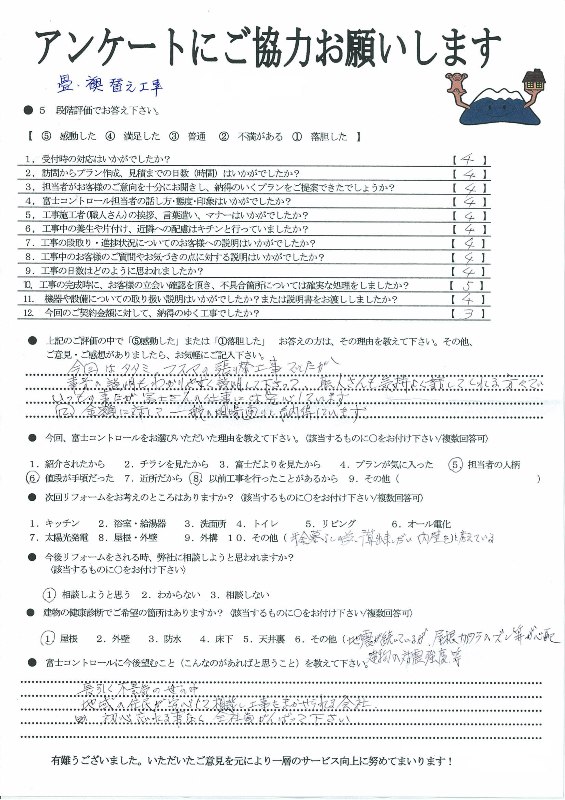 アンケートにご協力お願いします
畳・襖 替え工事
● 5 段階評価でお答え下さい。
【 ⑤ 感動した ④ 満足した ③ 普通 ② 不満がある ① 落胆した 】
1. 受付時の対応はいかがでしたか? 【 4 】
2. 訪問からプラン作成、見積までの日数（時間）はいかがでしたか? 【 4 】
3. 担当者がお客様のご意向を十分にお聞きし、納得のいくプランをご提案できたでしょうか? 【 4 】
4. 富士コントロール担当者の話し方・態度・印象はいかがでしたか? 【 4 】
5. 工事施工者（職人さん）の挨拶、言葉遣い、マナーはいかがでしたか? 【 4 】
6. 工事中の養生や片付け、近隣への配慮はキチンと行っていましたか? 【 4 】
7. 工事の段取り・進捗状況についてのお客様への説明はいかがでしたか? 【 4 】
8. 工事中のお客様のご質問やお気づきの点に対する説明はいかがでしたか? 【 4 】
9. 工事の日数はどのように思われましたか? 【 4 】
10. 工事の完成時に、お客様の立会い確認を頂き、不具合箇所については確実な処理をしましたか? 【 5 】
11. 機器や設備についての取り扱い説明はいかがでしたか?または説明書をお渡ししましたか? 【 4 】
12. 今回のご契約金額に対して、納得のゆく工事でしたか? 【 3 】
● 上記のご評価の中で「⑤感動した」または「①落胆した」 お答えの方は、その理由を教えて下さい。その他、
ご意見・ご感想がありましたら、お気軽にご記入下さい。
今回はタタミ、フスマの張り替工事でしたが
説明もわかりやすく説明して下さって、職人さんも気持よく
● 今回、富士コントロールをお選びいただいた理由を教えて下さい。（該当するものに○をお付け下さい/複数回答可）
1. 紹介されたから 2. チラシを見たから 3. 富士だよりを見たから 4. プランが気に入った ⑤ 担当者の人柄
⑥ 値段が手頃だった 7. 近所だから ⑧. 以前工事を行ったことがあるから 9. その他（ ）
● 次回リフォームをお考えのところはありますか?（該当するものに○をお付け下さい/複数回答可）
1. キッチン 2. 浴室・給湯器 3. 洗面所 4. トイレ 5. リビング 6. オール電化
7. 太陽光発電 8. 屋根・外壁 9. 外構 10. その他（
● 今後リフォームをされる時、弊社に相談しようと思いますか?
（該当するものに○をお付け下さい）
① 相談しようと思う 2. わからない 3. 相談しない
● 建物の健康診断でご希望の箇所はありますか?（該当するものに○をお付け下さい/複数回答可）
① 屋根 2. 外壁 3. 防水 4. 床下 5. 天井裏 6. その他（地震が続いているが、屋根カワラのズレ等が心配
建物の耐震強度等
● 富士コントロールに今後望むこと（こんなのがあればと思うこと）を教えて下さい。
長引く不景気の世の中
地域の住民が安心して相談し工事をまかせられる会社
初心忘れる事なく、会社員がんばって下さい
有難うございました。いただいたご意見を元により一層のサービス向上に努めてまいります!